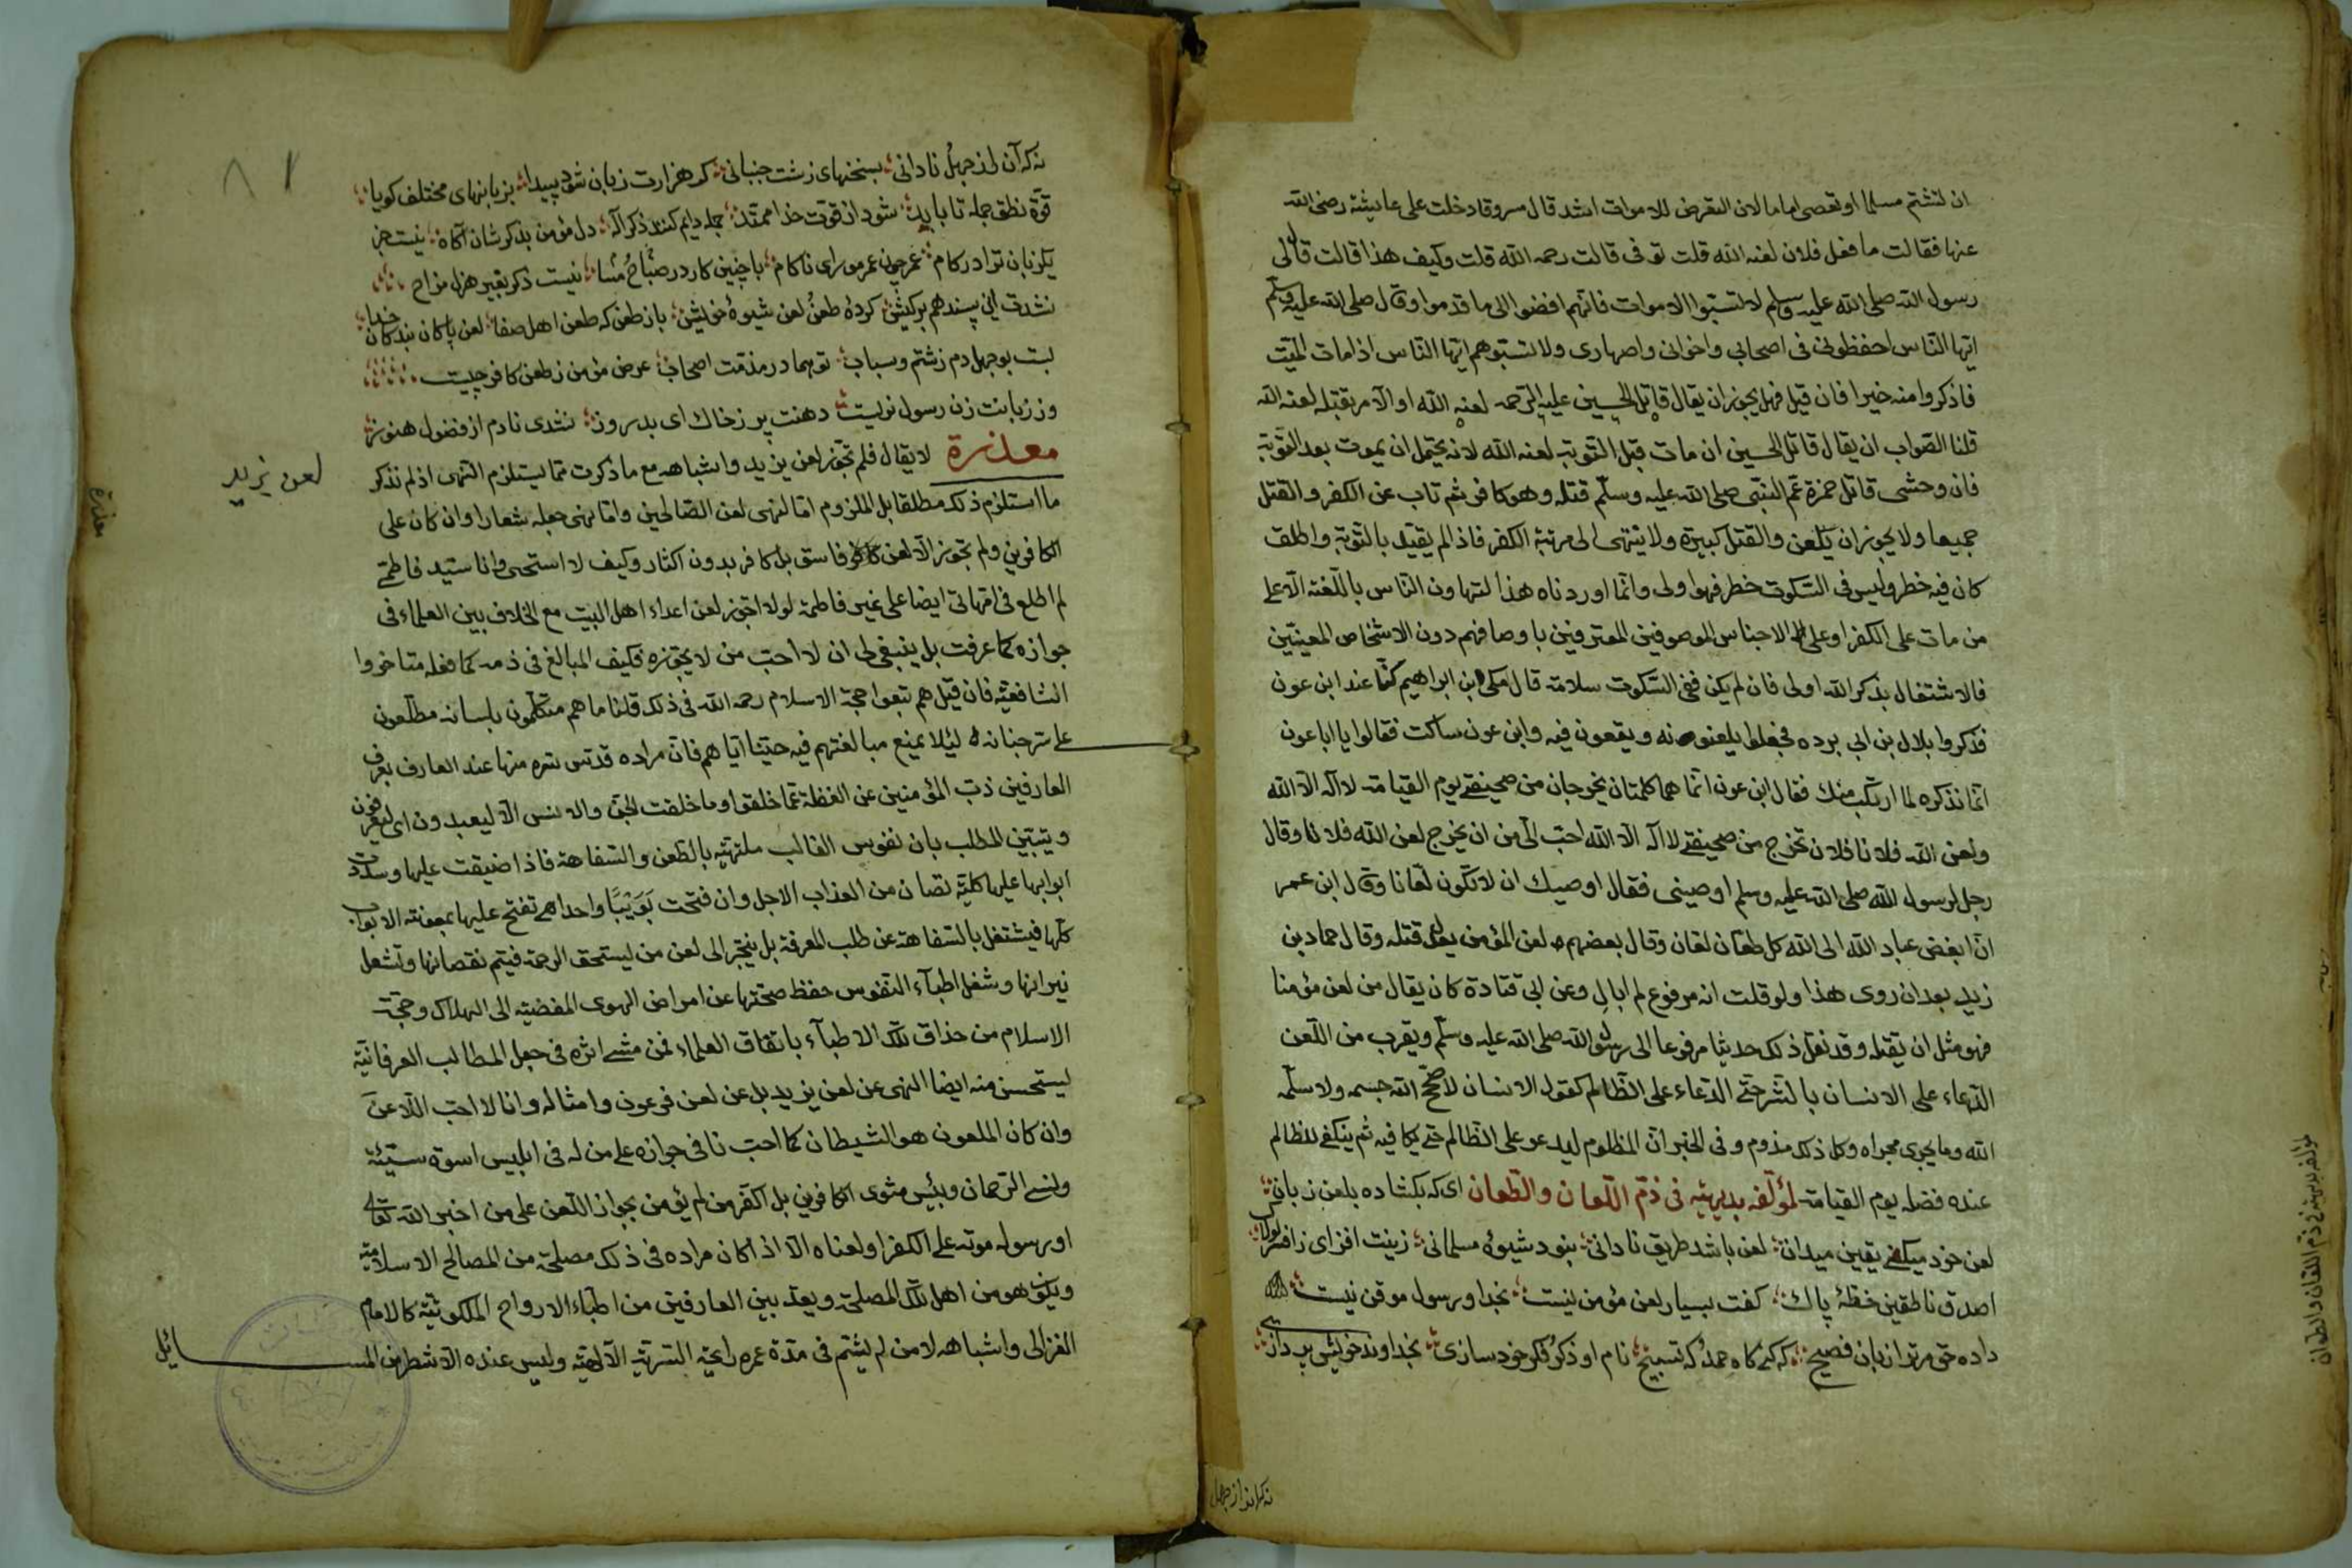 ان تشتم مسلما او تعصى اماما لان التعرض للاموات اشد قال مسروق دخلت على عايشة رضى الله
عنها فقالت ما فعل فلان لعنه الله قلت توفى قالت رحمه الله قلت وكيف هذا قالت قال لى
رسول الله صلى الله عليه وسلم لا تسبوا الاموات فانهم افضوا الى ما قدموا وقال صلى الله عليه وسلم
ايها الناس احفظونى فى اصحابى واخوانى واصهارى ولا تسبوهم ايها الناس اذا مات الميت
فاذكروا منه خيرا فان قيل فهل يجوز ان يقال قاتل الحسين عليه الرحمه لعنه الله او الآمر بقتله لعنه الله
قلنا الصواب ان يقال قاتل الحسين ان مات قبل التوبة لعنه الله لانه يحتمل ان يموت بعد التوبة
فان وحشى قاتل حمزة عم النبى صلى الله عليه وسلم قتله وهو كافر ثم تاب عن الكفر والقتل
جميعا ولا يجوز ان يلعن والقتل كبيرة ولا ينتهى الى مرتبة الكفر فاذا لم يقيد بالتوبة واطلق
كان فيه خطر وليس فى السكوت خطر فهو اولى وانما اوردنا هذا لتهاون الناس باللعنة الا على
من مات على الكفر او على الاجناس الموصوفين المعروفين باوصافهم دون الاشخاص المعينين
فالاشتغال بذكر الله اولى فان لم يكن ففى السكوت سلامة قال مكى بن ابراهيم كنا عند ابن عون
فذكروا بلال بن ابى برده فجعلوا يلعنونه ويقعون فيه وابن عون ساكت فقالوا يا ابا عون
انما نذكره لما ارتكب منك فقال ابن عون انما هما كلمتان يخرجان من صحيفتى يوم القيامة لا اله الا الله
ولعن الله فلانا فلان تخرج من صحيفتى لا اله الا الله احب الى من ان يخرج لعن الله فلانا وقال
رجل لرسول الله صلى الله عليه وسلم اوصينى فقال اوصيك ان لا تكون لعانا وقال ابن عمر
ان ابغض عباد الله الى الله كل طعان لعان وقال بعضهم لعن المؤمن يعدل قتله وقال حماد بن
زيد بعد ان روى هذا ولو قلت انه مرفوع لم ابال وعن ابى قتادة كان يقال من لعن مؤمنا
فهو مثل ان يقتله وقد نقل ذلك حديثا مرفوعا الى رسول الله صلى الله عليه وسلم ويقرب من اللعن
الدعاء على الانسان بالشر حتى الدعاء على الظالم كقول الانسان لا صحح الله جسمه ولا سلمه
الله وما يجرى مجراه وكل ذلك مذموم وفى الخبر ان المظلوم ليدعو على الظالم حتى يكافيه ثم يبقى للظالم
عنده فضله يوم القيامة لمؤلفه بديهية فى ذم اللعان والطعان اى كه بكشاده بلعن زبان
لعن خود ميكنى يقين ميدان لعن باشد طريق نادانى نبود شيوه مسلمانى زينت افزاى زافسر لولاك
اصدق ناطقين خطه پاك كفت بسيار لعن مؤمن نيست بخدا و رسول موقن نيست
داده حق مر ترا زبان فصيح كه كنى كاه حمد كه تسبيح نام او ذكر و فكر خود سازى بخداوند خويش پردازى
نه كه آن از جهل
لمؤلفه بديهية فى ذم اللعان والطعان
نه كه آن از جهل نادانى بسخنهاى زشت جنبانى كر هزارت زبان شود پيدا بزبانهاى مختلف كويا
قوة نطق جمله تا بابد شود از قوت خدا ممتد جمله دايم كنند ذكر اله دل مؤمن بذكرشان آكاه نيست جز
يك زبان ترا در كام عمر چون عمر مور اى ناكام با چنين كار در صباح مسا نيست ذكر بغير هزل مزاح
نشدت اين پسند هم بركيش كرده طعن لعن شيوه خويش باز طعن كه طعن اهل صفا لعن پاكان بندكان خدا
بست بوجهل دم زشتم و سباب تو بهما در مذمت اصحاب عرض مؤمن ز طعن كافر چيست
وز زبانت زن رسول نزيست دهنت پر ز خاك اى بدروز نشدى نادم از فضول هنوز
معذرة لا يقال فلم تجوز لعن يزيد واشباهه مع ما ذكرت مما يستلزم النهى اذ لم نذكر
ما استلزم ذلك مطلقا بل الملزوم اما لنهى لعن الصالحين واما نهى جعله شعارا وان كان على
الكافرين ولم تجوز الا لعن فاسق بل كافر بدون اكثار وكيف لا استحى وانا سيد فاطمى
لم اطلع فى امهاتى ايضا على غير فاطمة لولا اجوز لعن اعداء اهل البيت مع الخلاف بين العلماء فى
جوازه كما عرفت بل ينبغى لى ان لا احب من لا يجوزه فكيف المبالغ فى ذمه كما فعله متاخروا
الشافعية فان قيل هم تبعوا حجة الاسلام رحمه الله فى ذلك قلنا ما هم متكلمون بلسانه مطلعون
على سر جنانه لئلا يمنع مبالغتهم فيه حبنا اياهم فان مراده قدس سره منها عند العارف بعرف
العارفين ذب المؤمنين عن الغفلة عما خلقوا وما خلقت الجن والانس الا ليعبدون اى ليعرفون
ويتبين المطلب بان نفوس الغالب ملتهية بالطعن والسفاهة فاذا ضيقت عليها وسدت
ابوابها عليها كلية تصان من العذاب الاجل وان فتحت بويبا واحدا هى تفتح عليها بمعونته الابواب
كلها فيشتغل بالسفاهة عن طلب المعرفة بل ينجر الى لعن من يستحق الرحمة فيتم نقصانها وتشعل
نيرانها وشغل اطباء النفوس حفظ صحتها عن امراض الهوى المفضية الى الهلاك وحجة
الاسلام من حذاق تلك الاطباء باتفاق العلماء فمن مشى اثره فى جعل المطالب العرفانية
يستحسن منه ايضا النهى عن لعن يزيد بل عن لعن فرعون وامثاله وانا لا احب اللاعن
وان كان الملعون هو الشيطان كما احب نافى جوازه على من له فى ابليس اسوة سيئة
ونسى الرحمان وبئس مثوى الكافرين بل اكفر من لم يؤمن بجواز اللعن على من اخبر الله تعالى
او رسوله موته على الكفر او لعناه الا اذا كان مراده فى ذلك مصلحة من المصالح الاسلامية
ويكون هو من اهل تلك المصلحة ويعد بين العارفين من اطباء الارواح الملكوتية كالامام
الغزالى واشباهه لا من لم يشم فى مدة عمره رايحة السرية الالهية وليس عنده الا شطر من المسائل
لعن يزيد
معذرة